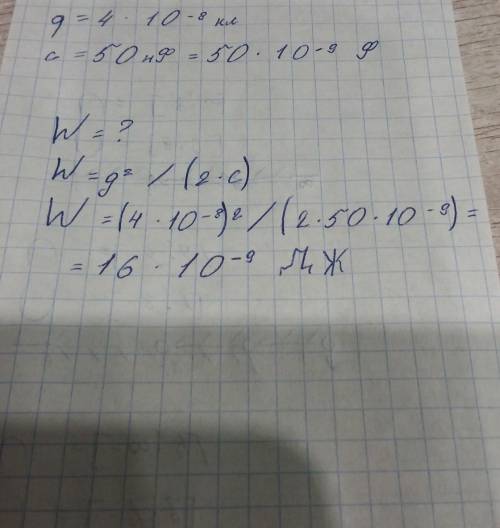 q = 4 · 10⁻⁸ кл
c = 50 нФ = 50 · 10⁻⁹ Ф
W = ?
W = q² / (2 · c)
W = (4 · 10⁻⁸)² / (2 · 50 · 10⁻⁹) =
= 16 · 10⁻⁹ ДЖ